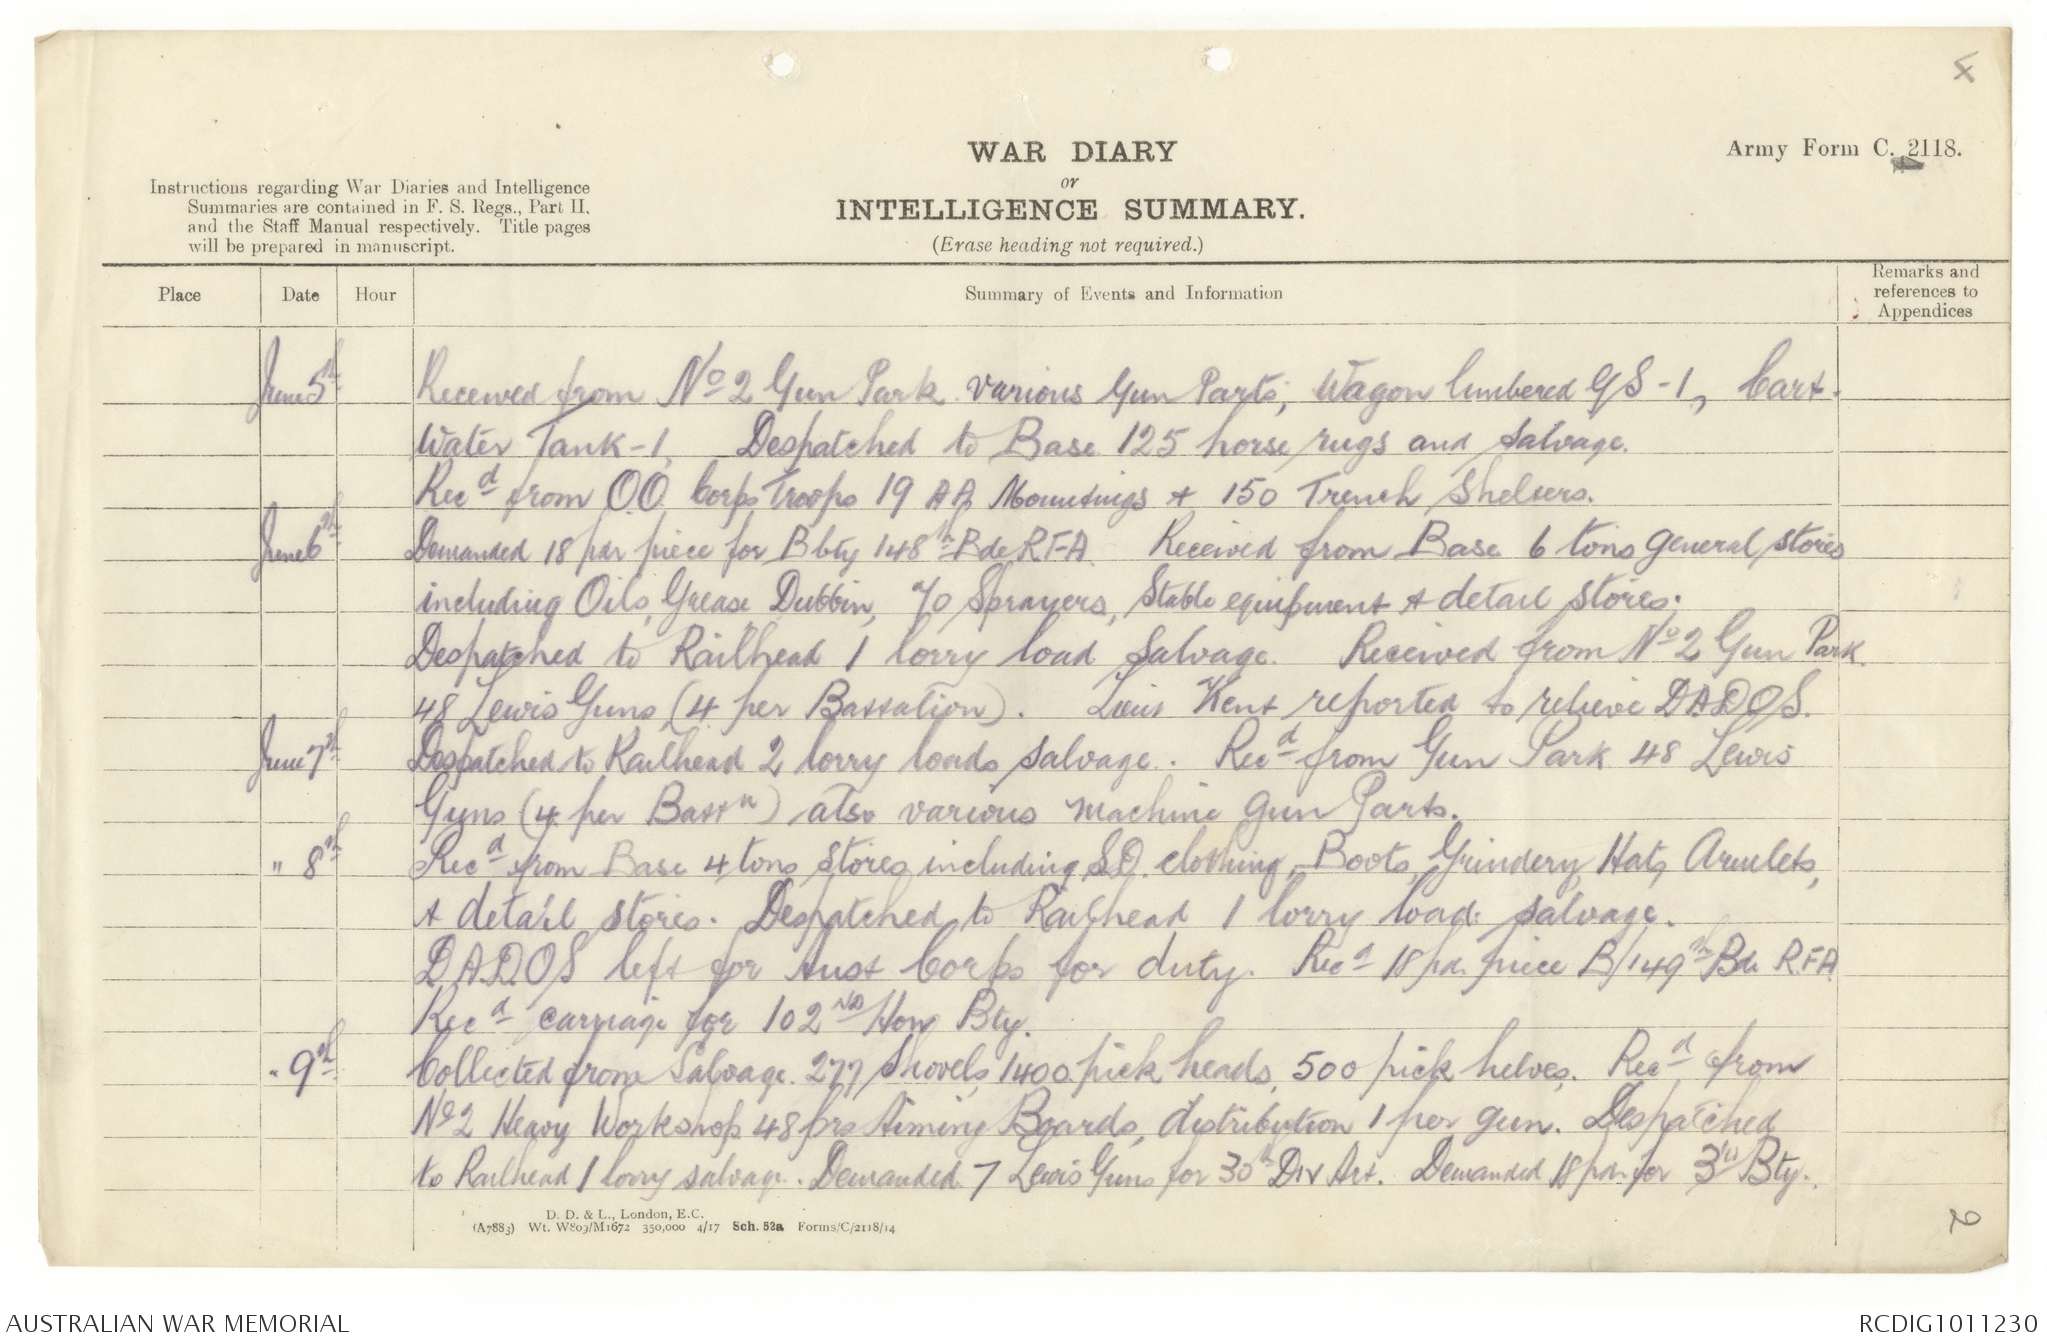 4
WAR DIARY
or
INTELLIGENCE SUMMARY.
(Erase heading not required.)
Army Form C. 2118.
Instructions regarding War Diaries and Intelligence
Summaries are contained in F. S. Regs., Part II.
and the Staff Manual respectively. Title pages
will be prepared in manuscript.
Place
Date
Hour
Summary of Events and Information
Remarks and
references to
Appendices
June 5th Received from No 2 Gun Park various Gun Parts, Wagon limbered GS-1, Cart.
Water Tank-1. Despatched to Base 125 horse rugs and salvage.
Recd from O.O. Corps Troops 19 AA Mountings & 150 Trench Shelters.
June 6th Demanded 18 pdr piece for B bty 148th Bde R.F.A. Received from Base 6 tons general stores
including Oils, Grease, Dubbin, Sprayers, Stable equipment & detail stores.
Despatched to Railhead 1 lorry load salvage. Received from No 2 Gun Park
48 Lewis Guns (4 per Battalion). Lieut Kent reported to relieve D.A.D.O.S.
June 7th Despatched to Railhead 2 lorry loads salvage. Recd from Gun Park 48 Lewis
Guns (4 per Battn) also various machine gun Parts.
" 8th Recd from Base 4 tons stores including S.D. clothing, Boots, Grindery, Hats, Armlets,
& detail stores. Despatched to Railhead 1 lorry load salvage.
D.A.D.O.S left for Aust Corps for duty. Recd 18 pdr piece B/149th Bde R.F.A
Recd carriage for 102ND How Bty.
" 9th Collected from Salvage 277 Shovels, 1400 pick heads, 500 pick helves. Recd from
No 2 Heavy Workshop 48 prs Aiming Boards, distribution 1 per gun. Despatched
to Railhead 1 lorry salvage. Demanded 7 Lewis Guns for 30th Div Art. Demanded 18 pdr for 3rd Bty.
D. D. & L., London, E.C.
(A7883) Wt. W809/M1672 350,000 4/17 Sch. 52a Forms/C/2118/14
2
AUSTRALIAN WAR MEMORIAL
RCDIG1011230